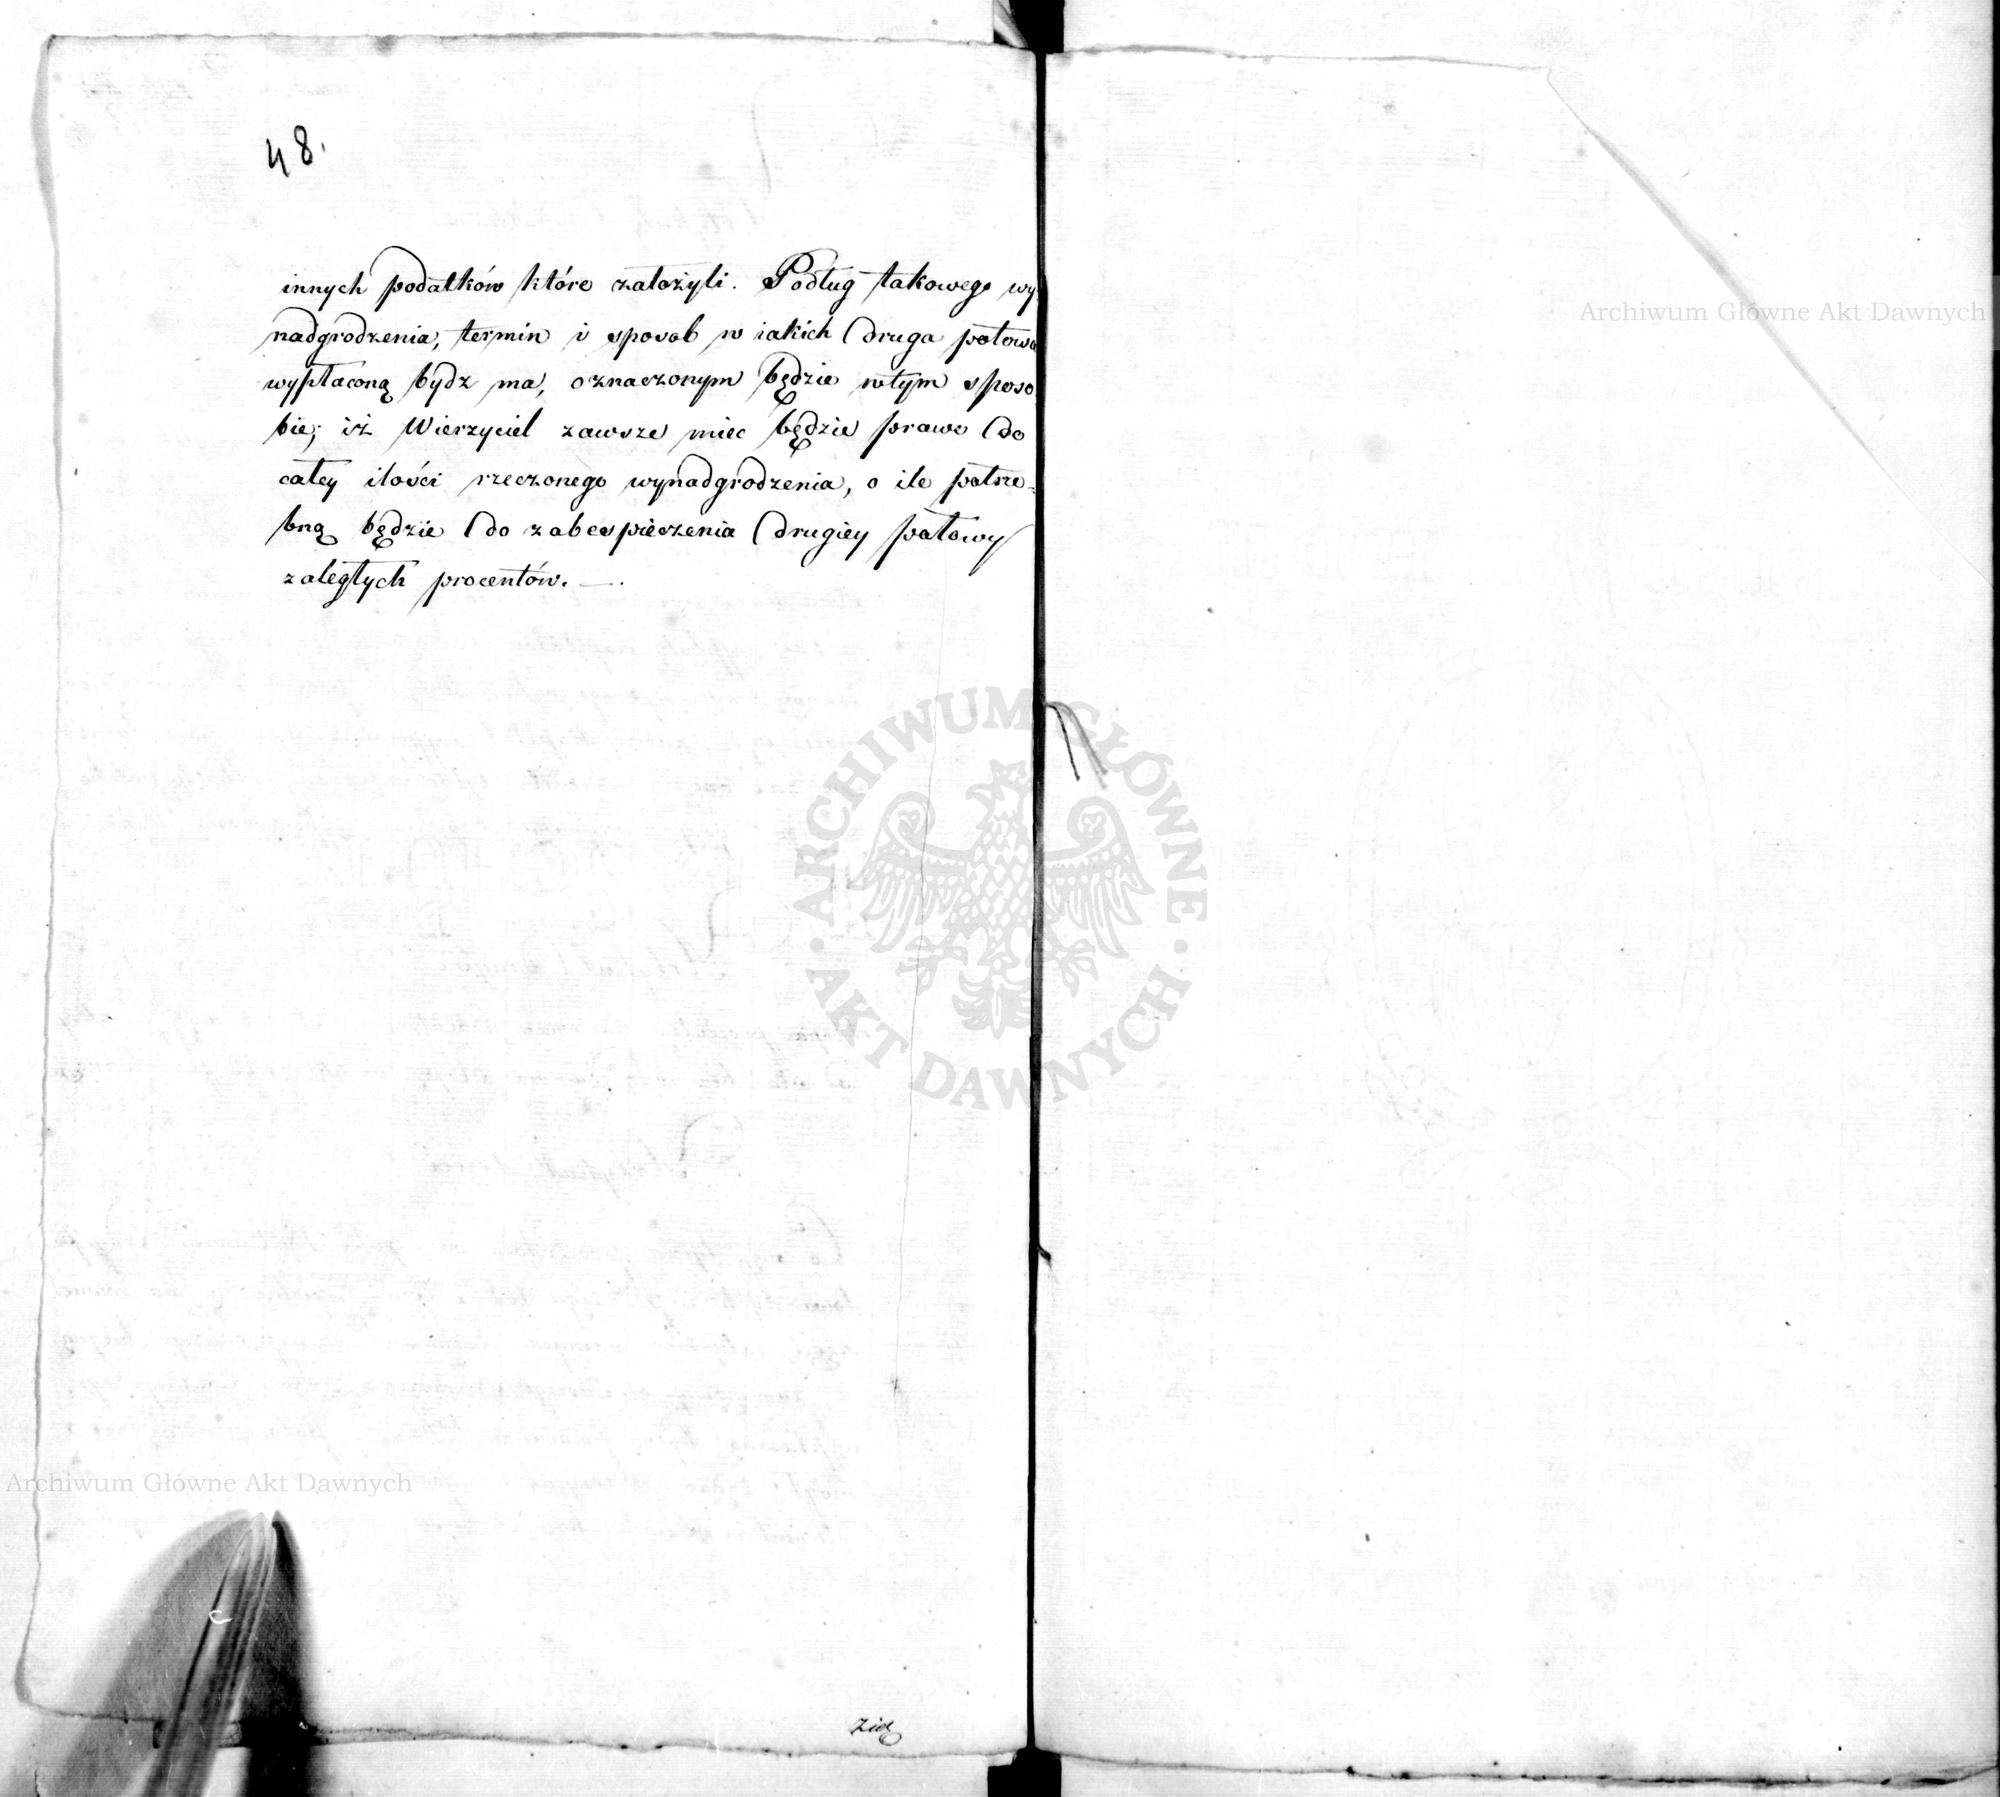 48.
innych podatków które założyli. Podług takowego wy
nadgrodzenia, termin i sposob w iakich druga połowa
wypłaconą bydz ma, oznaczonym będzie wtym sposo
bie; iż Wierzyciel zawsze miec będzie prawo do
całey ilości rzeczonego wynadgrodzenia, o ile potrze-
bną będzie do zabespieczenia drugiey połowy
zaległych procentów. —
Archiwum Główne Akt Dawnych
ARCHIWUM GŁÓWNE
AKT DAWNYCH
Archiwum Główne Akt Dawnych